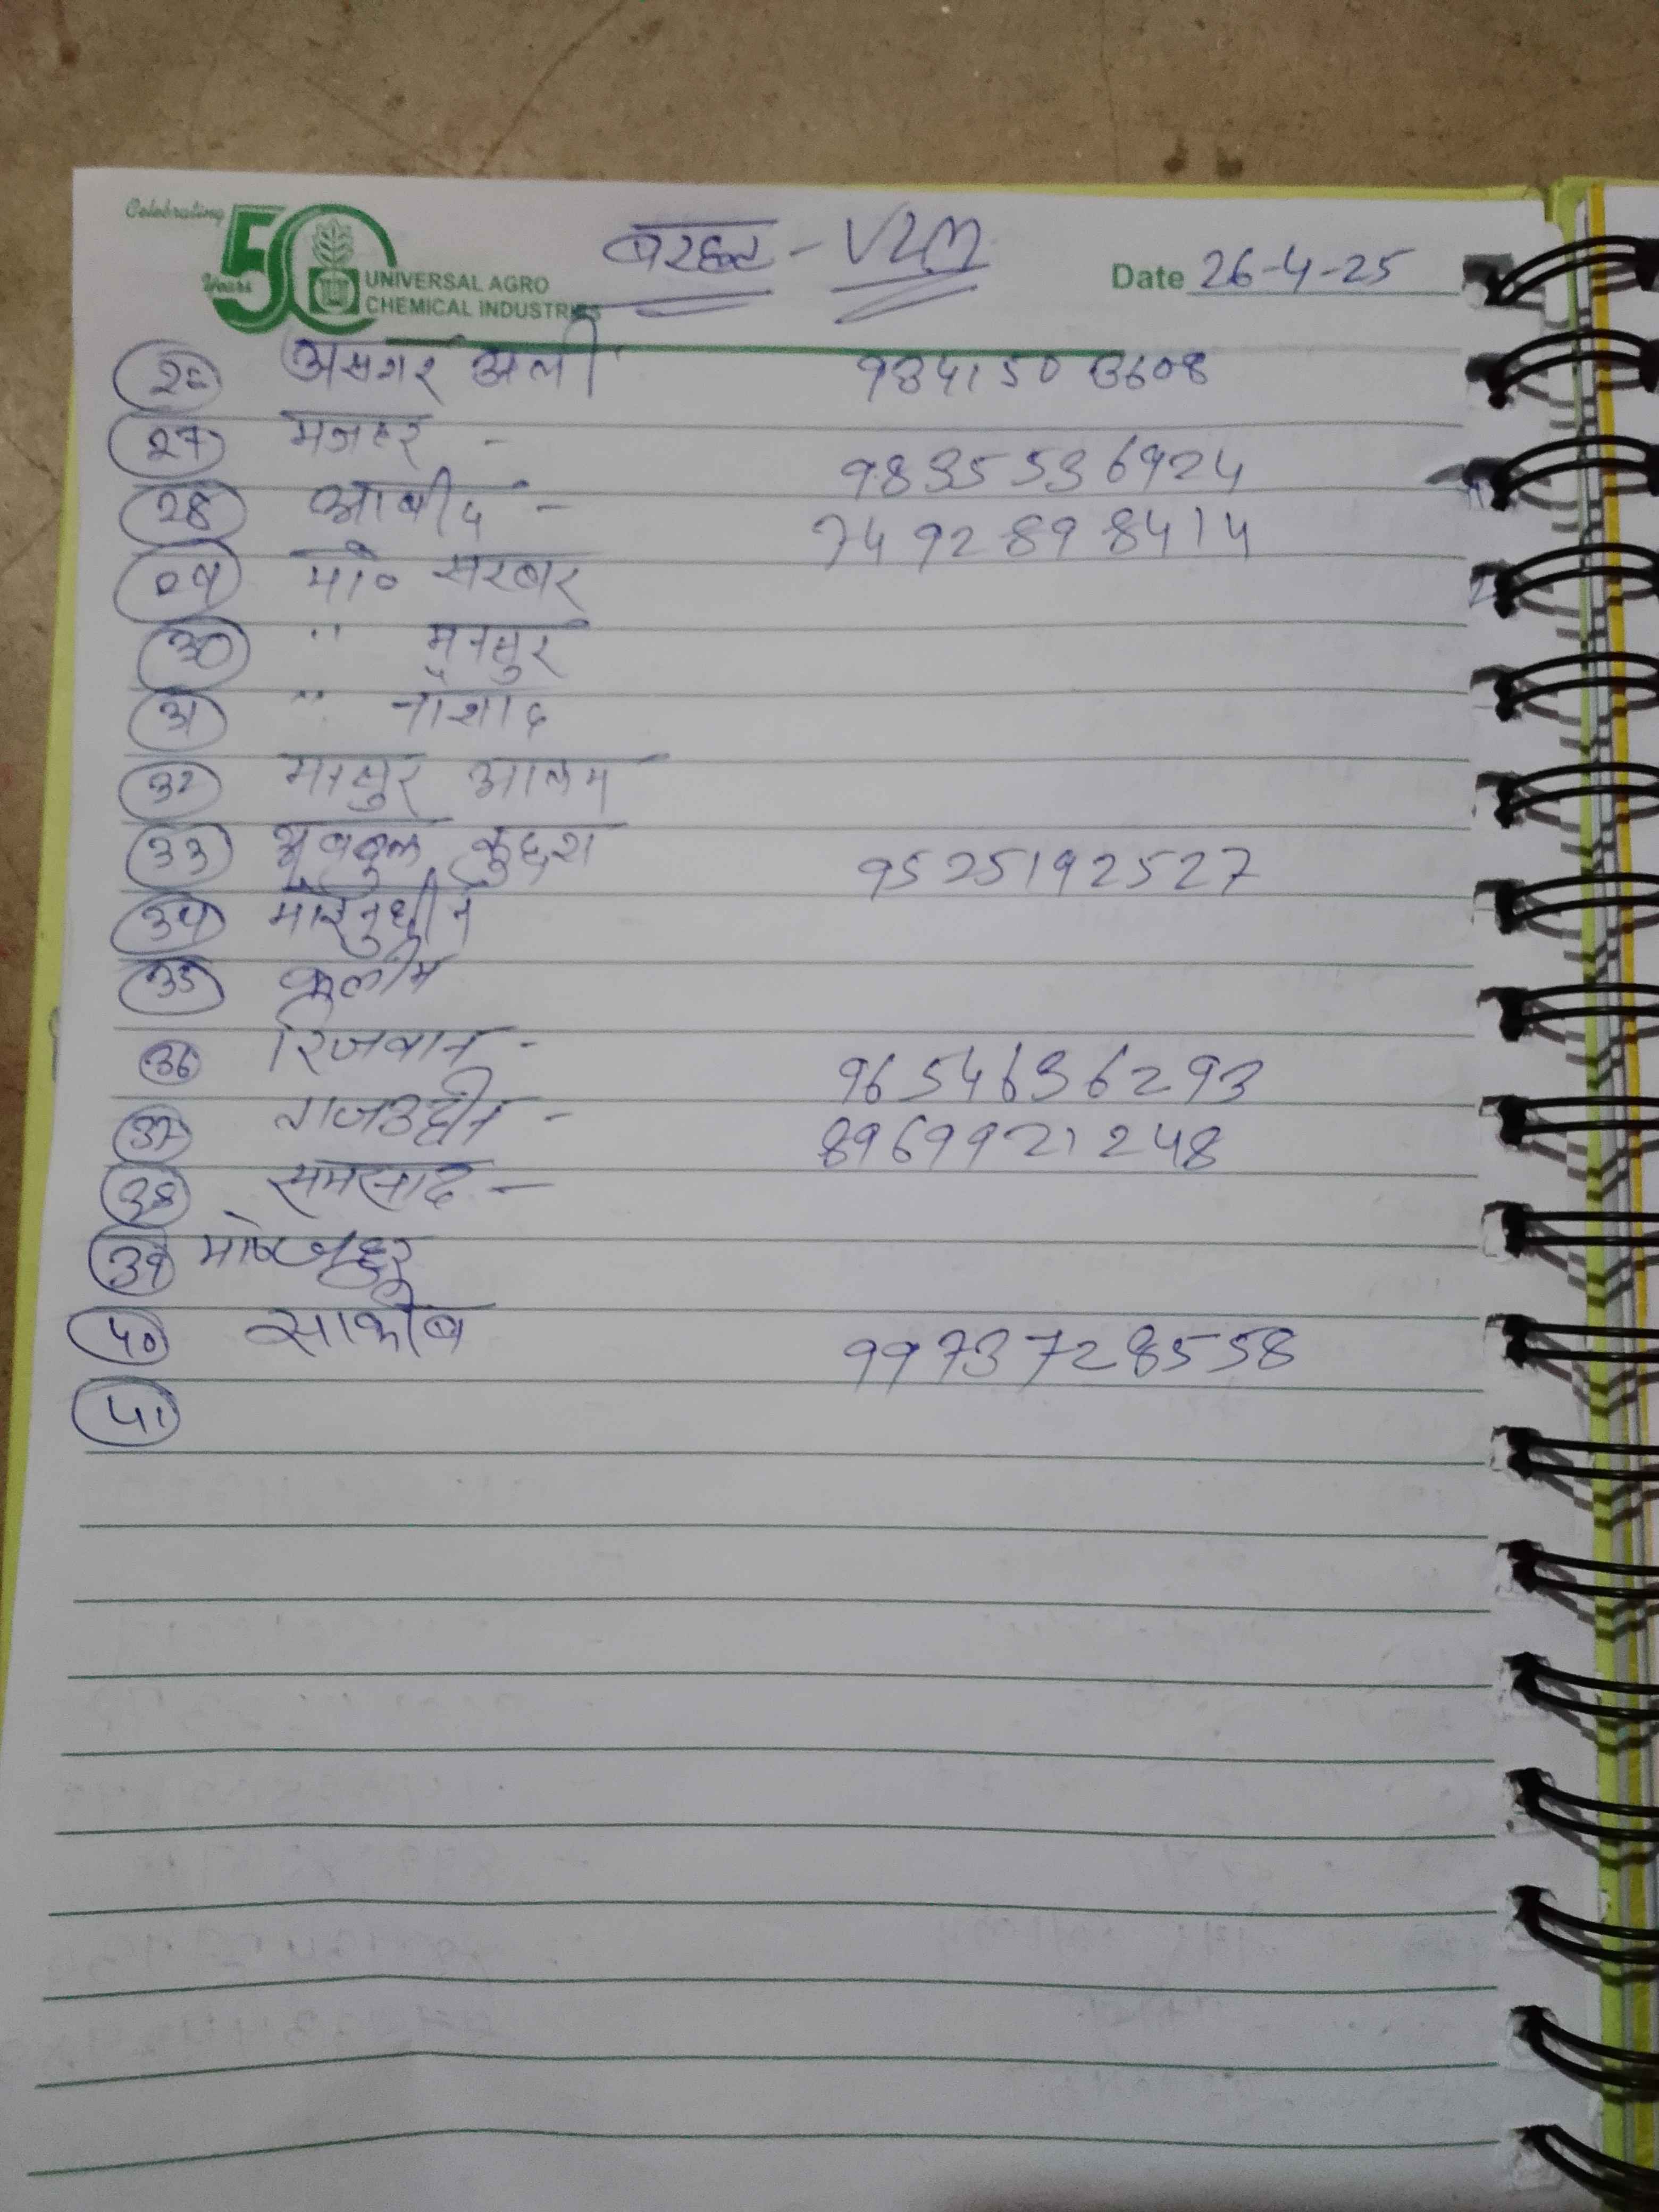 Celebrating
50
Years
UNIVERSAL AGRO
CHEMICAL INDUSTRIES
बरहट - VLM
Date 26-4-25
26 असगर अली 9341503608
27 मजहर - 9835536924
28 आबीद - 7492898414
29 मो० सरबर
30 " मनसुर
31 " नौशाद
32 मनसुर आलम
33 कुद्दुश 9525192527
34 मोईनुद्दीन
35 कलीम
36 रिजवान - 9654636293
37 ताजउद्दीन - 8969921248
38 समसाद -
39 मो०
40 साकीब 9973728558
41